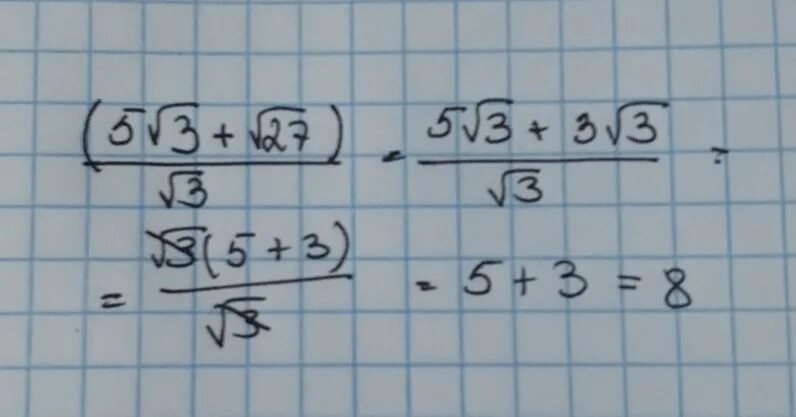 (5√3 + √27) / √3 = (5√3 + 3√3) / √3 =
= √3(5 + 3) / √3 = 5 + 3 = 8